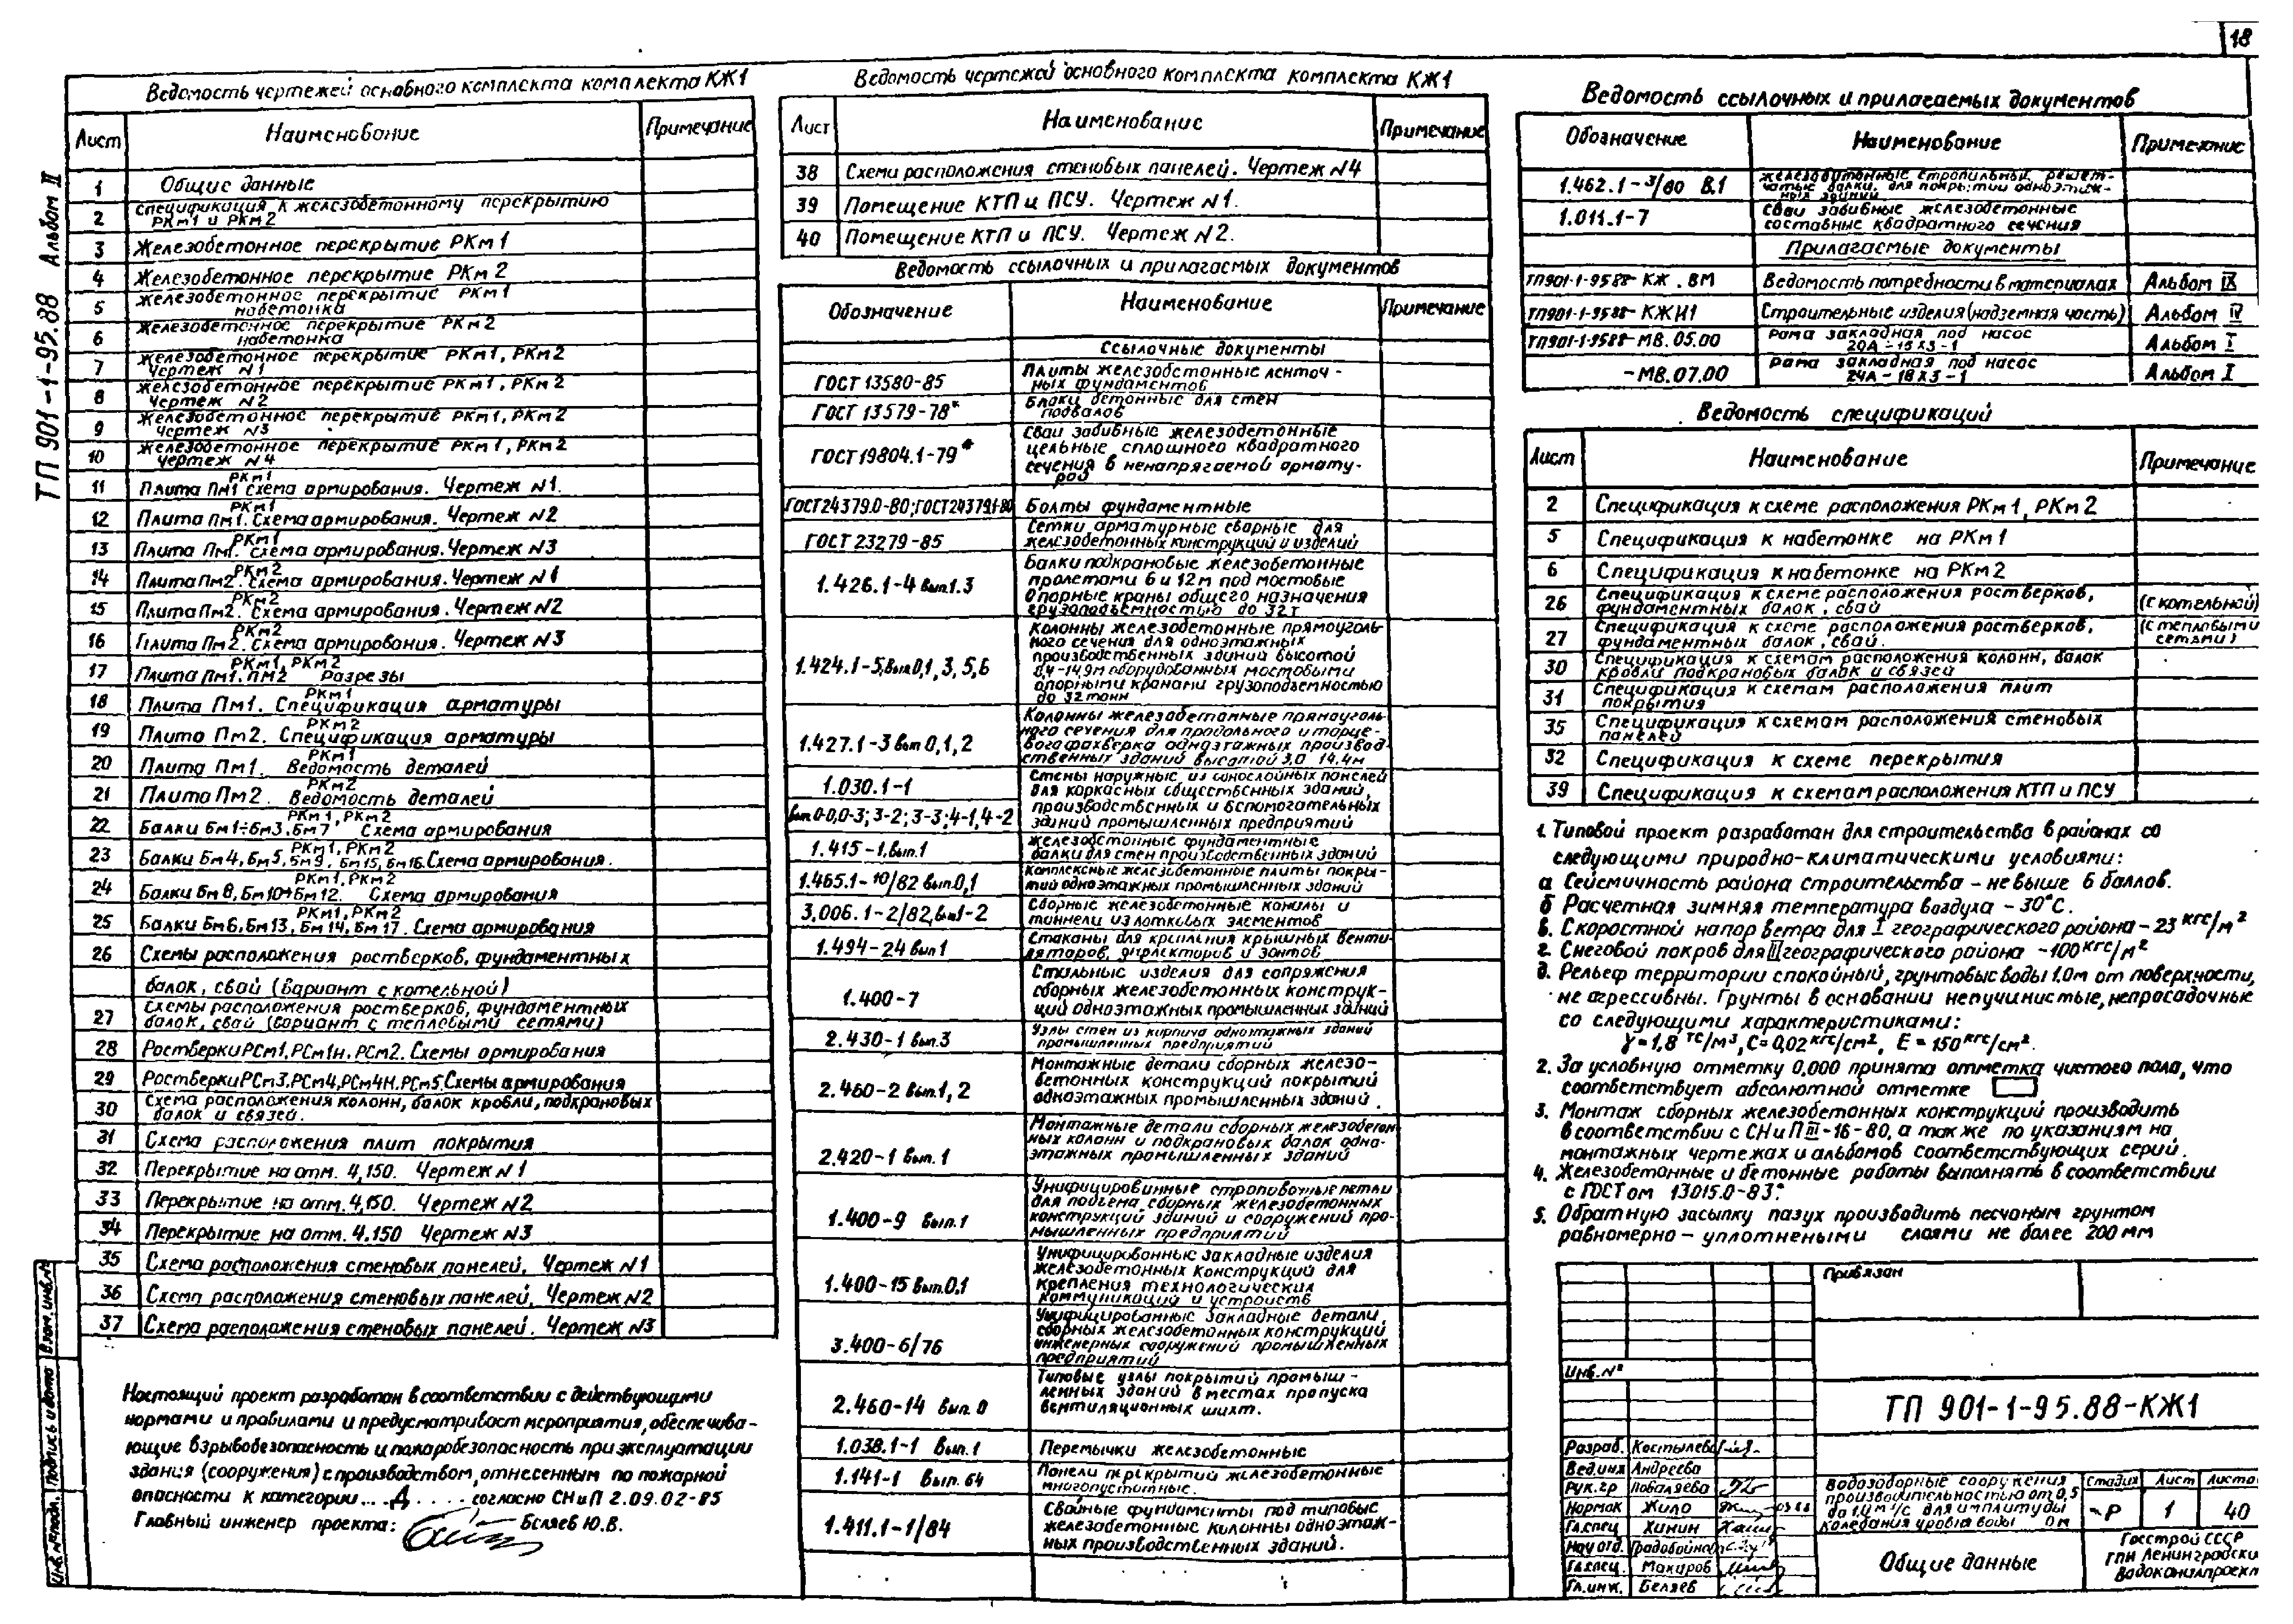 18
ТП 901-1-95.88 Альбом II
Ведомость чертежей основного комплекта комплекта КЖ1
Лист Наименование Примечание
1 Общие данные
2 Спецификация к железобетонному перекрытию
РКм1 и РКм2
3 Железобетонное перекрытие РКм1
4 Железобетонное перекрытие РКм2
5 Железобетонное перекрытие РКм1
набетонка
6 Железобетонное перекрытие РКм2
набетонка
7 Железобетонное перекрытие РКм1, РКм2
Чертеж №1
8 Железобетонное перекрытие РКм1, РКм2
Чертеж №2
9 Железобетонное перекрытие РКм1, РКм2
Чертеж №3
10 Железобетонное перекрытие РКм1, РКм2
Чертеж №4
РКм1
11 Плита Пм1 Схема армирования. Чертеж №1.
РКм1
12 Плита Пм1. Схема армирования. Чертеж №2
РКм1
13 Плита Пм1. Схема армирования. Чертеж №3
РКм2
14 Плита Пм2. Схема армирования. Чертеж №1
РКм2
15 Плита Пм2. Схема армирования. Чертеж №2
РКм2
16 Плита Пм2. Схема армирования. Чертеж №3
РКм1, РКм2
17 Плита Пм1. Пм2 Разрезы
РКм1
18 Плита Пм1. Спецификация арматуры
РКм2
19 Плита Пм2. Спецификация арматуры
РКм1
20 Плита Пм1. Ведомость деталей
РКм2
21 Плита Пм2. Ведомость деталей
РКм1, РКм2
22 Балки Бм1÷Бм3. Бм7 Схема армирования
РКм1, РКм2
23 Балки Бм4, Бм5, Бм9, Бм15, Бм16. Схема армирования.
РКм1, РКм2
24 Балки Бм8, Бм10÷Бм12. Схема армирования
РКм1, РКм2
25 Балки Бм6, Бм13, Бм14, Бм17. Схема армирования
26 Схемы расположения ростверков, фундаментных
балок, свай (вариант с котельной)
27 Схемы расположения ростверков, фундаментных
балок, свай (вариант с тепловыми сетями)
28 Ростверки РСм1, РСм1н, РСм2. Схемы армирования
29 Ростверки РСм3, РСм4, РСм4н, РСм5. Схемы армирования
30 Схема расположения колонн, балок кровли, подкрановых
балок и связей.
31 Схема расположения плит покрытия
32 Перекрытие на отм. 4,150. Чертеж №1
33 Перекрытие на отм. 4,150. Чертеж №2
34 Перекрытие на отм. 4.150 Чертеж №3
35 Схема расположения стеновых панелей. Чертеж №1
36 Схема расположения стеновых панелей. Чертеж №2
37 Схема расположения стеновых панелей. Чертеж №3
Настоящий проект разработан в соответствии с действующими
нормами и правилами и предусматривает мероприятия, обеспечива-
ющие взрывобезопасность и пожаробезопасность при эксплуатации
здания (сооружения) с производством, отнесенным по пожарной
опасности к категории... Д .... согласно СНиП 2.09.02-85
Главный инженер проекта: Беляев Ю.В.
Взам. инв.№
Подпись и дата
Инв.№подл.
Ведомость чертежей основного комплекта комплекта КЖ1
Лист Наименование Примечание
38 Схема расположения стеновых панелей. Чертеж №4
39 Помещение КТП и ПСУ. Чертеж №1.
40 Помещение КТП и ПСУ. Чертеж №2.
Ведомость ссылочных и прилагаемых документов
Обозначение Наименование Примечание
Ссылочные документы
ГОСТ 13580-85 Плиты железобетонные ленточ-
ных фундаментов
ГОСТ 13579-78* Блоки бетонные для стен
подвалов
ГОСТ 19804.1-79* Сваи забивные железобетонные
цельные сплошного квадратного
сечения в ненапрягаемой армату-
рой
ГОСТ24379.0-80; ГОСТ24379.1-80 Болты фундаментные
ГОСТ 23279-85 Сетки арматурные сварные для
железобетонных конструкций и изделий
1.426.1-4 вып.3 Балки подкрановые железобетонные
пролетами 6 и 12м под мостовые
опорные краны общего назначения
грузоподъемностью до 32т
1.424.1-5, вып.0,1,3,5,6 Колонны железобетонные прямоуголь-
ного сечения для одноэтажных
производственных зданий высотой
8,4-14,9м оборудованных мостовыми
опорными кранами грузоподъемностью
до 32 тонн
1.427.1-3 вып 0,1,2 Колонны железобетонные прямоуголь-
ного сечения для продольного и торце-
вого фахверка одноэтажных производ-
ственных зданий высотой 3,0 14,4м
1.030.1-1
вып.0-0,0-3; 3-2; 3-3; 4-1, 4-2 Стены наружные из однослойных панелей
для каркасных общественных зданий,
производственных и вспомогательных
зданий промышленных предприятий
1.415-1.вып.1 Железобетонные фундаментные
балки для стен производственных зданий
1.465.1-10/82 вып.0,1 Комплексные железобетонные плиты покры-
тий одноэтажных промышленных зданий
3.006.1-2/82, вып1-2 Сборные железобетонные каналы и
тоннели из лотковых элементов
1.494-24 вып1 Стаканы для крепления крышных венти-
ляторов, дефлекторов и зонтов
1.400-7 Стальные изделия для сопряжения
сборных железобетонных конструк-
ций одноэтажных промышленных зданий
2.430-1 вып.3 Узлы стен из кирпича одноэтажных зданий
промышленных предприятий
2.460-2 вып.1,2 Монтажные детали сборных железо-
бетонных конструкций покрытий
одноэтажных промышленных зданий.
2.420-1 вып.1 Монтажные детали сборных железобетон
ных колонн и подкрановых балок одно-
этажных промышленных зданий
1.400-9 вып.1 Унифицированные строповочные петли
для подъема сборных железобетонных
конструкций зданий и сооружений про-
мышленных предприятий
1.400-15 вып.0,1 Унифицированные закладные изделия
железобетонных конструкций для
крепления технологических
коммуникаций и устройств
3.400-6/76 Унифицированные закладные детали
сборных железобетонных конструкций
инженерных сооружений промышленных
предприятий
2.460-14 вып. 0 Типовые узлы покрытий промыш-
ленных зданий в местах пропуска
вентиляционных шахт.
1.038.1-1 вып.1 Перемычки железобетонные
1.141-1 вып. 64 Панели перекрытий железобетонные
многопустотные.
1.411.1-1/84 Свайные фундаменты под типовые
железобетонные колонны одноэтаж-
ных производственных зданий.
Ведомость ссылочных и прилагаемых документов
Обозначение Наименование Примечание
1.462.1-3/80 В.1 Железобетонные стропильные решет-
чатые балки для покрытий одноэтаж-
ных зданий
1.011.1-7 Сваи забивные железобетонные
составные квадратного сечения
Прилагаемые документы
ТП901-1-95.88-КЖ.ВМ Ведомость потребности в материалах Альбом IX
ТП901-1-95.88-КЖИ1 Строительные изделия (надземная часть) Альбом IV
ТП901-1-95.88-МВ.05.00 Рама закладная под насос
20А-18х3-1 Альбом I
-МВ.07.00 Рама закладная под насос
24А-18х3-1 Альбом I
Ведомость спецификаций
Лист Наименование Примечание
2 Спецификация к схеме расположения РКм1, РКм2
5 Спецификация к набетонке на РКм1
6 Спецификация к набетонке на РКм2
26 Спецификация к схеме расположения ростверков,
фундаментных балок, свай (с котельной)
27 Спецификация к схеме расположения ростверков,
фундаментных балок, свай. (с тепловыми
сетями)
30 Спецификация к схемам расположения колонн, балок
кровли подкрановых балок и связей
31 Спецификация к схемам расположения плит
покрытия
35 Спецификация к схемам расположения стеновых
панелей
32 Спецификация к схеме перекрытия
39 Спецификация к схемам расположения КТП и ПСУ
1. Типовой проект разработан для строительства в районах со
следующими природно-климатическими условиями:
а Сейсмичность района строительства - не выше 6 баллов.
б Расчетная зимняя температура воздуха -30°С.
в. Скоростной напор ветра для I географического района - 23 кгс/м²
г. Снеговой покров для III географического района -100 кгс/м²
д. Рельеф территории спокойный, грунтовые воды 1.0м от поверхности,
не агрессивны. Грунты в основании непучинистые, непросадочные
со следующими характеристиками:
γ=1,8 тс/м³, С=0,02 кгс/см², Е=150 кгс/см².
2. За условную отметку 0,000 принята отметка чистого пола, что
соответствует абсолютной отметке
3. Монтаж сборных железобетонных конструкций производить
в соответствии с СНиП III-16-80, а также по указаниям на
монтажных чертежах и альбомов соответствующих серий.
4. Железобетонные и бетонные работы выполнять в соответствии
с ГОСТом 13015.0-83*
5. Обратную засыпку пазух производить песчаным грунтом
равномерно - уплотнеными слоями не более 200 мм
Привязан
Инв.№
ТП 901-1-95.88-КЖ1
Разраб. Костылева
Вед.инж Андреева
Рук.гр Поваляева
Нормок Жило
Гл.спец Хинин
Нач отд. Градобойнов
Гл.спец. Макаров
Гл.инж. Беляев
Водозаборные сооружения
производительностью от 0,5
до 1,0 м³/с для амплитуды
колебания уровня воды 0м
Стадия Лист Листов
Р 1 40
Общие данные
Госстрой СССР
ГПИ Ленинградски
Водоканалпроект